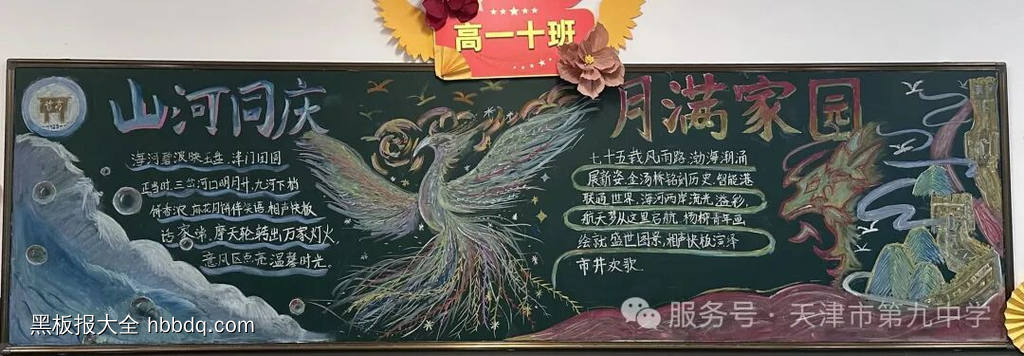 高一十班
山河同庆
海河碧波映玉盘,津门团圆
正当时,三岔河口明月升,九河下梢
饼香浓,麻花月饼伴笑语,相声快板
话家常,摩天轮转出万家灯火,
意风区点亮温馨时光.
月满家园
七十五载风雨路,渤海潮涌
展新姿,金汤桥铭刻历史,智能港
联通世界.海河两岸流光溢彩,
航天梦从这里启航.杨柳青年画
绘就盛世图景,相声快板演绎
市井欢歌.
黑板报大全 hbbdq.com
服务号·天津市第九中学